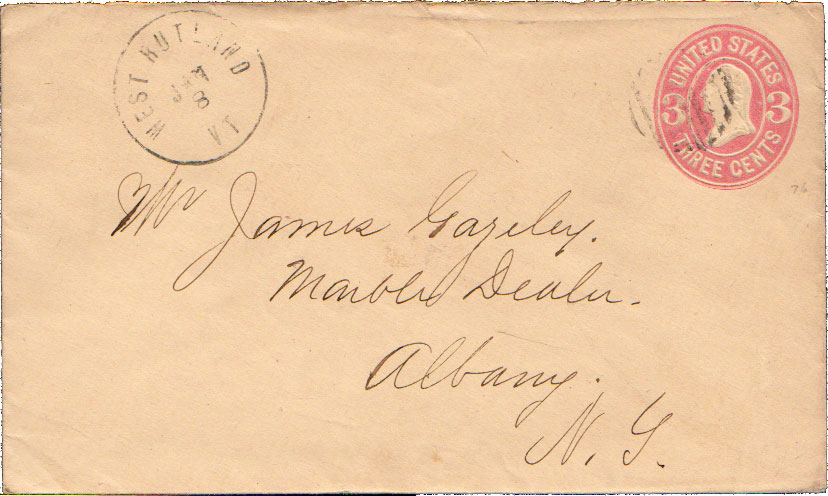 WEST RUTLAND VT
JAN
8
UNITED STATES
3 3
THREE CENTS
76
Mr James Gazeley.
Marble Dealer.
Albany.
N. Y.